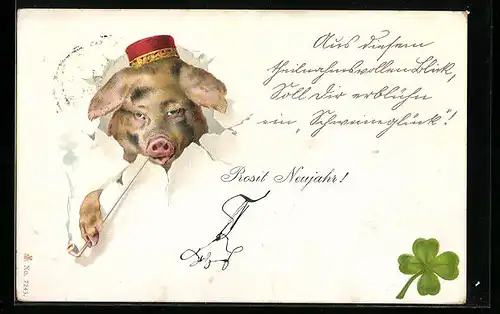 Aus diesem
theilnahmsvollen Blick,
Soll Dir erblühn
ein „Schweineglück"!
Prosit Neujahr!
No. 7245.